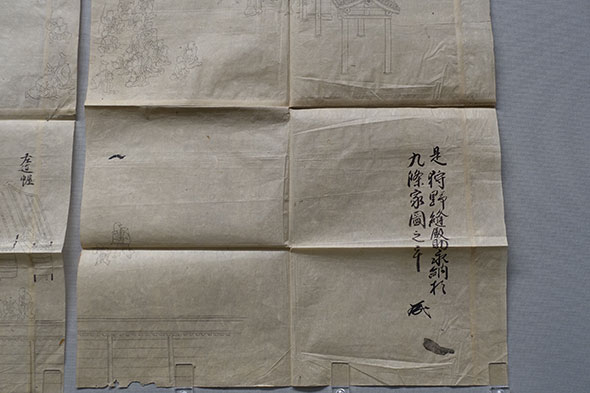 是狩野縫殿助永納於
九條家圖之
左近幄